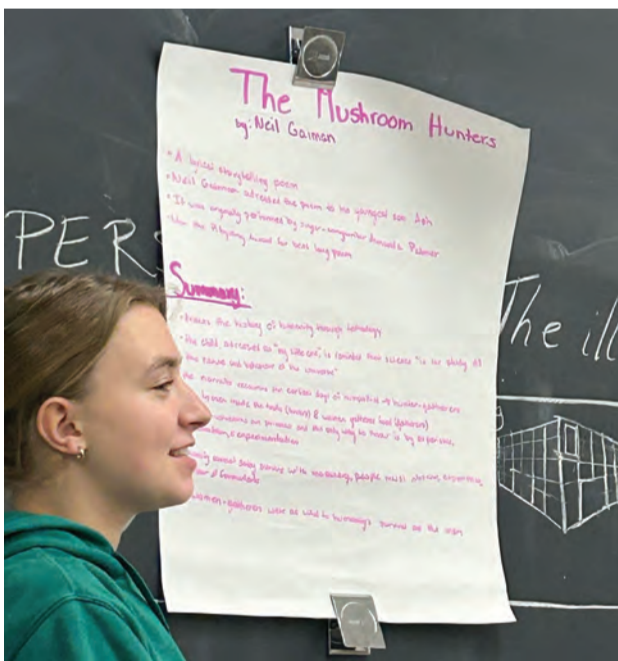 The Mushroom Hunters
by: Neil Gaiman
• A lyrical storytelling poem
• Neil Gaiman adressed the poem to his youngest son Ash
• It was originally performed by singer-songwriter Amanda Palmer
• Won the Rhysling Award for best long poem
PERS
Summary:
• Traces the history of humanity through
The ill
• The child, adressed as "my little one" is reminded that science "is our study of
the nature and behaviour of the universe"
the narrator recounts the earliest days of → hunter-gatherers
men made the (hunters) & women gathered food (gatherers)
are and the only way to know is by experience,
experimentation
people must observe, experience,
women-gatherers were as vital to humanity's survival as the men